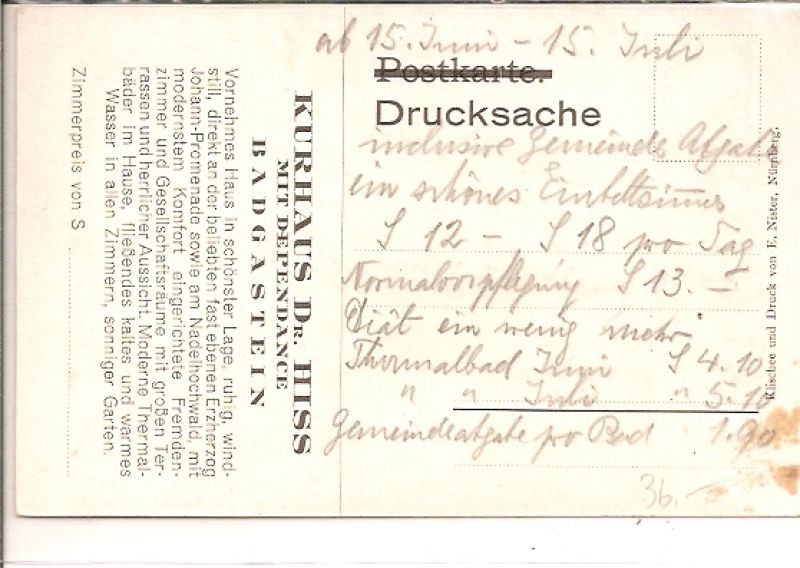 KURHAUS DR. HISS
MIT DEPENDANCE
BADGASTEIN
Vornehmes Haus in schönster Lage, ruhig, wind-
still, direkt an der beliebten fast ebenen Erzherzog
Johann-Promenade sowie am Nadelhochwald, mit
modernstem Komfort eingerichtete Fremden-
zimmer und Gesellschaftsräume mit großen Ter-
rassen und herrlicher Aussicht. Moderne Thermal-
bäder im Hause, fließendes kaltes und warmes
Wasser in allen Zimmern, sonniger Garten.
Zimmerpreis von S
ab 15. Juni – 15. Juli
Postkarte.
Drucksache
inclusive Gemeinde Abgabe
ein schönes Einbettzimmer
S 12 – S 18 pro Tag
Normalverpflegung S 13.–
Diät ein wenig mehr
Thermalbad Juni S 4.10
" " Juli " 5.10
Gemeindeabgabe pro Bad 1.90
36.–
Klischee und Druck von E. Nister, Nürnberg.